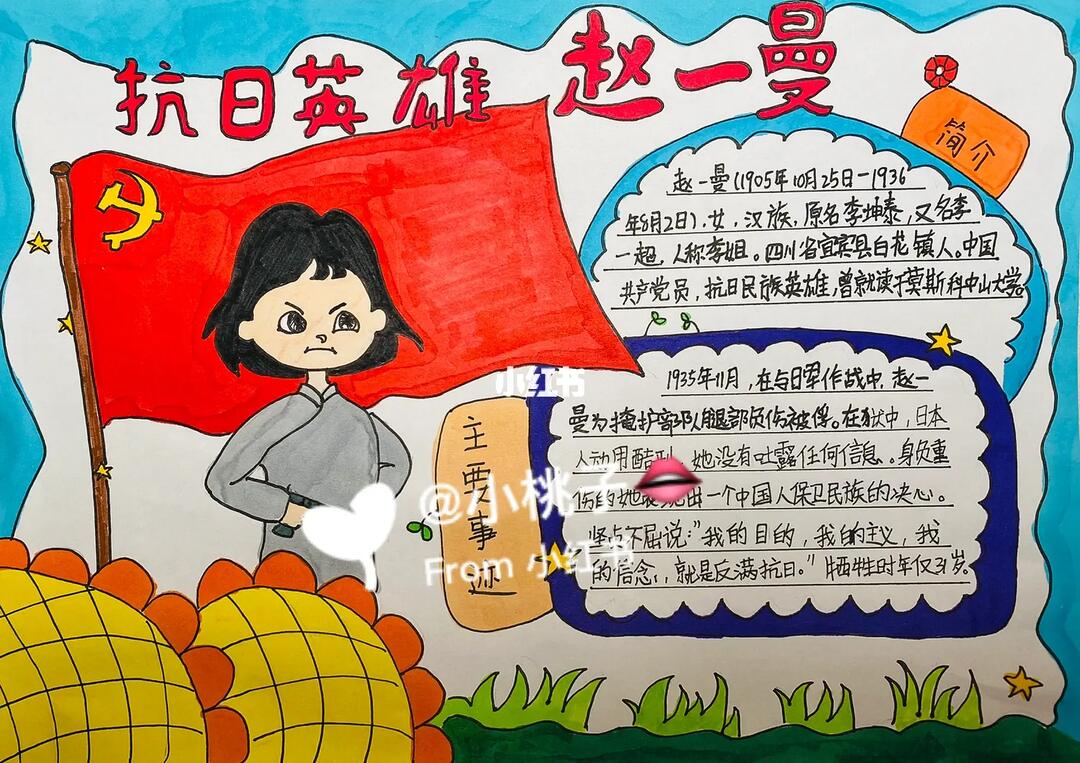 抗日英雄 赵一曼
简介
赵一曼(1905年10月25日—1936
年8月2日)、女,汉族,原名李坤泰,又名李
一超,人称李姐。四川省宜宾县白花镇人。中国
共产党员,抗日民族英雄,曾就读于莫斯科中山大学。
主要事迹
1935年11月,在与日军作战中,赵一
曼为掩护部队腿部负伤被俘。在狱中,日本
人动用酷刑,她没有吐露任何信息。身负重
伤的她表现出一个中国人保卫民族的决心。
坚贞不屈说:"我的目的,我的主义,我
的信念,就是反满抗日。"牺牲时年仅31岁。
小红书
@小桃子
From 小红书